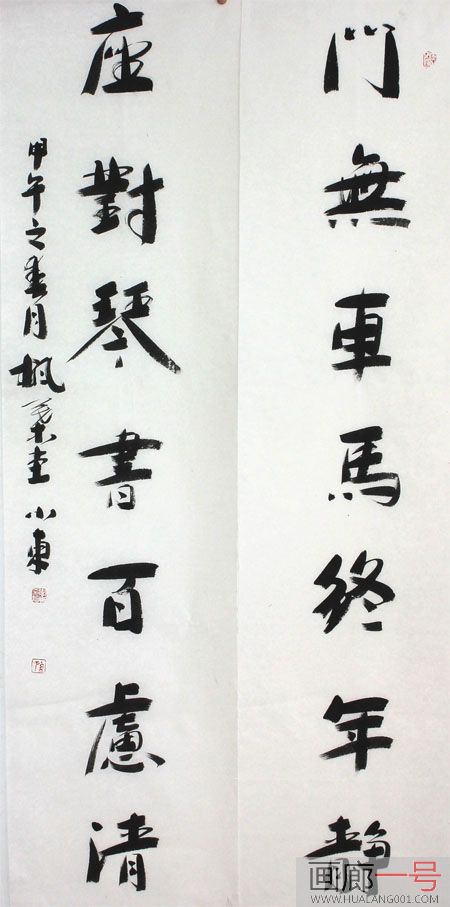 門無車馬終年靜
座對琴書百慮清
甲午之春月楓葉堂小東
画廊一号
WWW.HUALANG001.COM